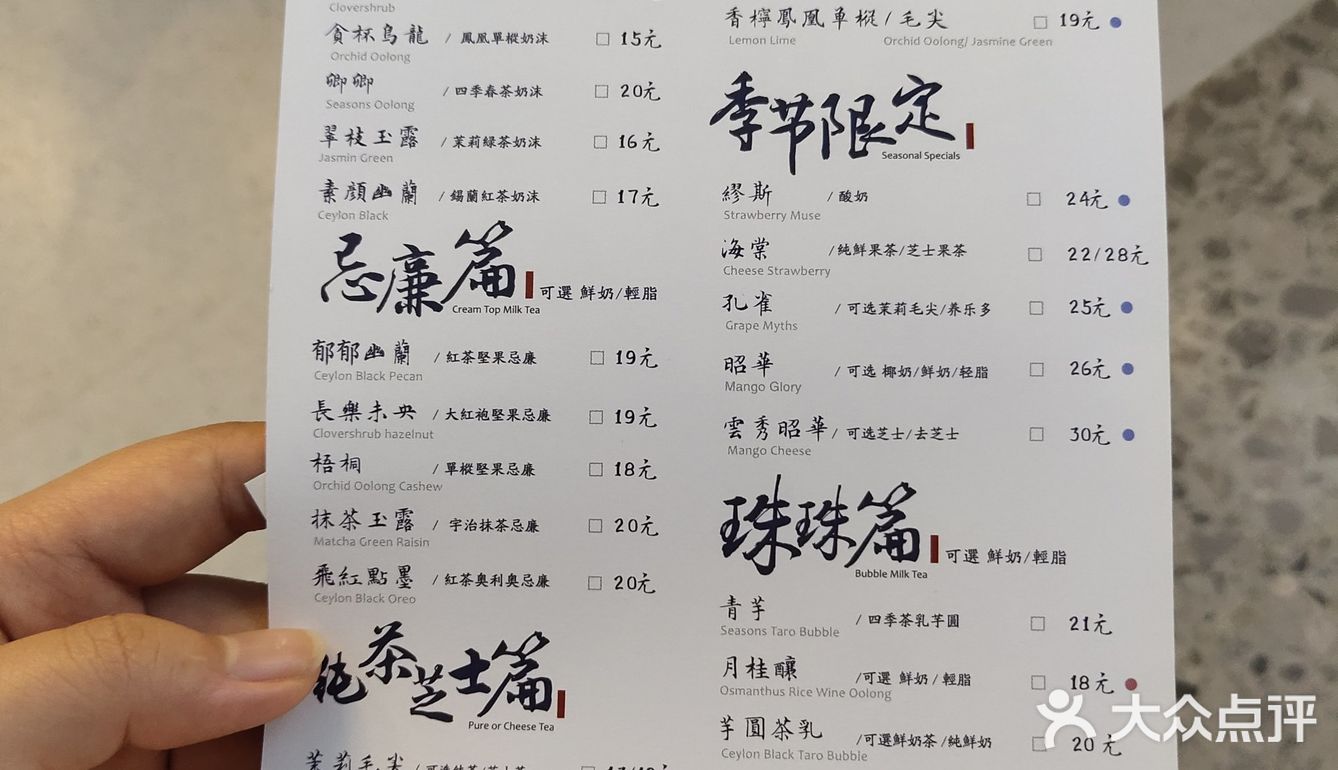 Clovershrub
貪杯烏龍 / 鳳凰單樅奶沫 □ 15元
Orchid Oolong
卿卿 / 四季春茶奶沫 □ 20元
Seasons Oolong
翠枝玉露 / 茉莉綠茶奶沫 □ 16元
Jasmin Green
素顏幽蘭 / 錫蘭紅茶奶沫 □ 17元
Ceylon Black
忌廉篇 可選 鮮奶/輕脂
Cream Top Milk Tea
郁郁幽蘭 / 紅茶堅果忌廉 □ 19元
Ceylon Black Pecan
長樂未央 / 大紅袍堅果忌廉 □ 19元
Clovershrub hazelnut
梧桐 / 單樅堅果忌廉 □ 18元
Orchid Oolong Cashew
抹茶玉露 / 宇治抹茶忌廉 □ 20元
Matcha Green Raisin
飛紅點墨 / 紅茶奧利奧忌廉 □ 20元
Ceylon Black Oreo
純茶芝士篇
Pure or Cheese Tea
茉莉毛尖
香檸鳳凰單樅 / 毛尖 □ 19元
Lemon Lime Orchid Oolong/ Jasmine Green
季节限定
Seasonal Specials
繆斯 / 酸奶 □ 24元
Strawberry Muse
海棠 /純鮮果茶/芝士果茶 □ 22/28元
Cheese Strawberry
孔雀 / 可选茉莉毛尖/养乐多 □ 25元
Grape Myths
昭華 / 可选 椰奶/鮮奶/轻脂 □ 26元
Mango Glory
雲秀昭華 / 可选芝士/去芝士 □ 30元
Mango Cheese
珠珠篇 可選 鮮奶/輕脂
Bubble Milk Tea
青芋 / 四季茶乳芋圓 □ 21元
Seasons Taro Bubble
月桂釀 /可選 鮮奶 / 輕脂 □ 18元
Osmanthus Rice Wine Oolong
芋圓茶乳 /可選鮮奶茶 /純鮮奶 □ 20元
Ceylon Black Taro Bubble
大众点评